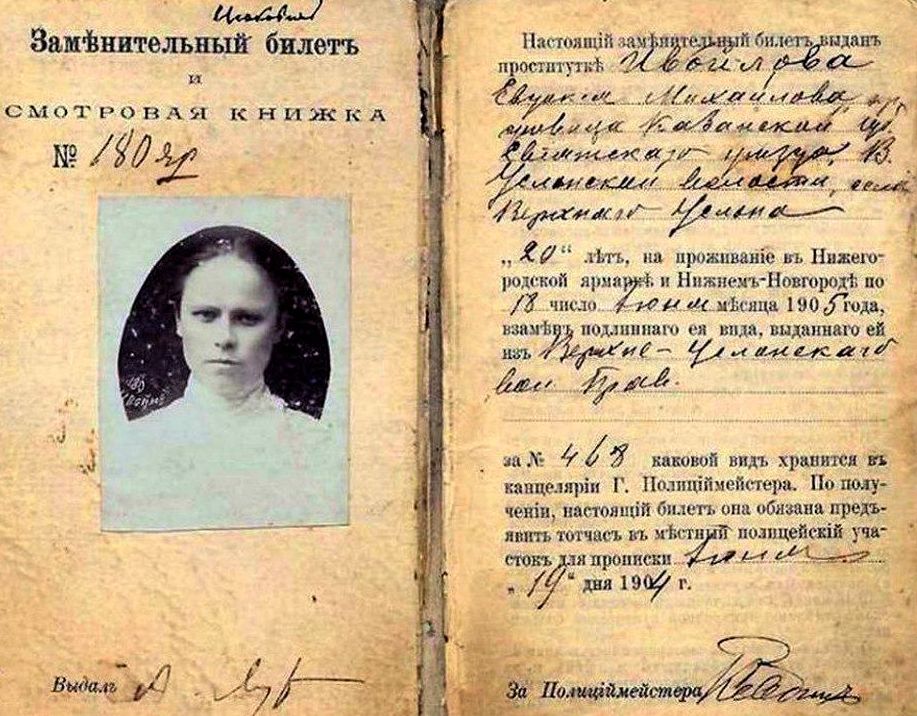 Замѣнительный билетъ
и
СМОТРОВАЯ КНИЖКА
№ 180 яр
Выдалъ
Настоящій замѣнительный билетъ выданъ
проституткѣ Ивойлова
Михайлова
Казанской губ.
уѣзда, В.
Услонской волости, села
Верхняго Услона
„20“ лѣтъ, на проживаніе въ Нижего-
родской ярмаркѣ и Нижнемъ-Новгородѣ по
18 число Іюня мѣсяца 1905 года,
взамѣнъ подлиннаго ея вида, выданнаго ей
изъ Верхне-Услонскаго
вол Прав.
за № 468 каковой видъ хранится въ
канцеляріи Г. Полиціймейстера. По полу-
ченіи, настоящій билетъ она обязана предъ-
явить тотчасъ въ мѣстный полицейскій уча-
стокъ для прописки Іюня
„19“ дня 1904 г.
За Полиціймейстера